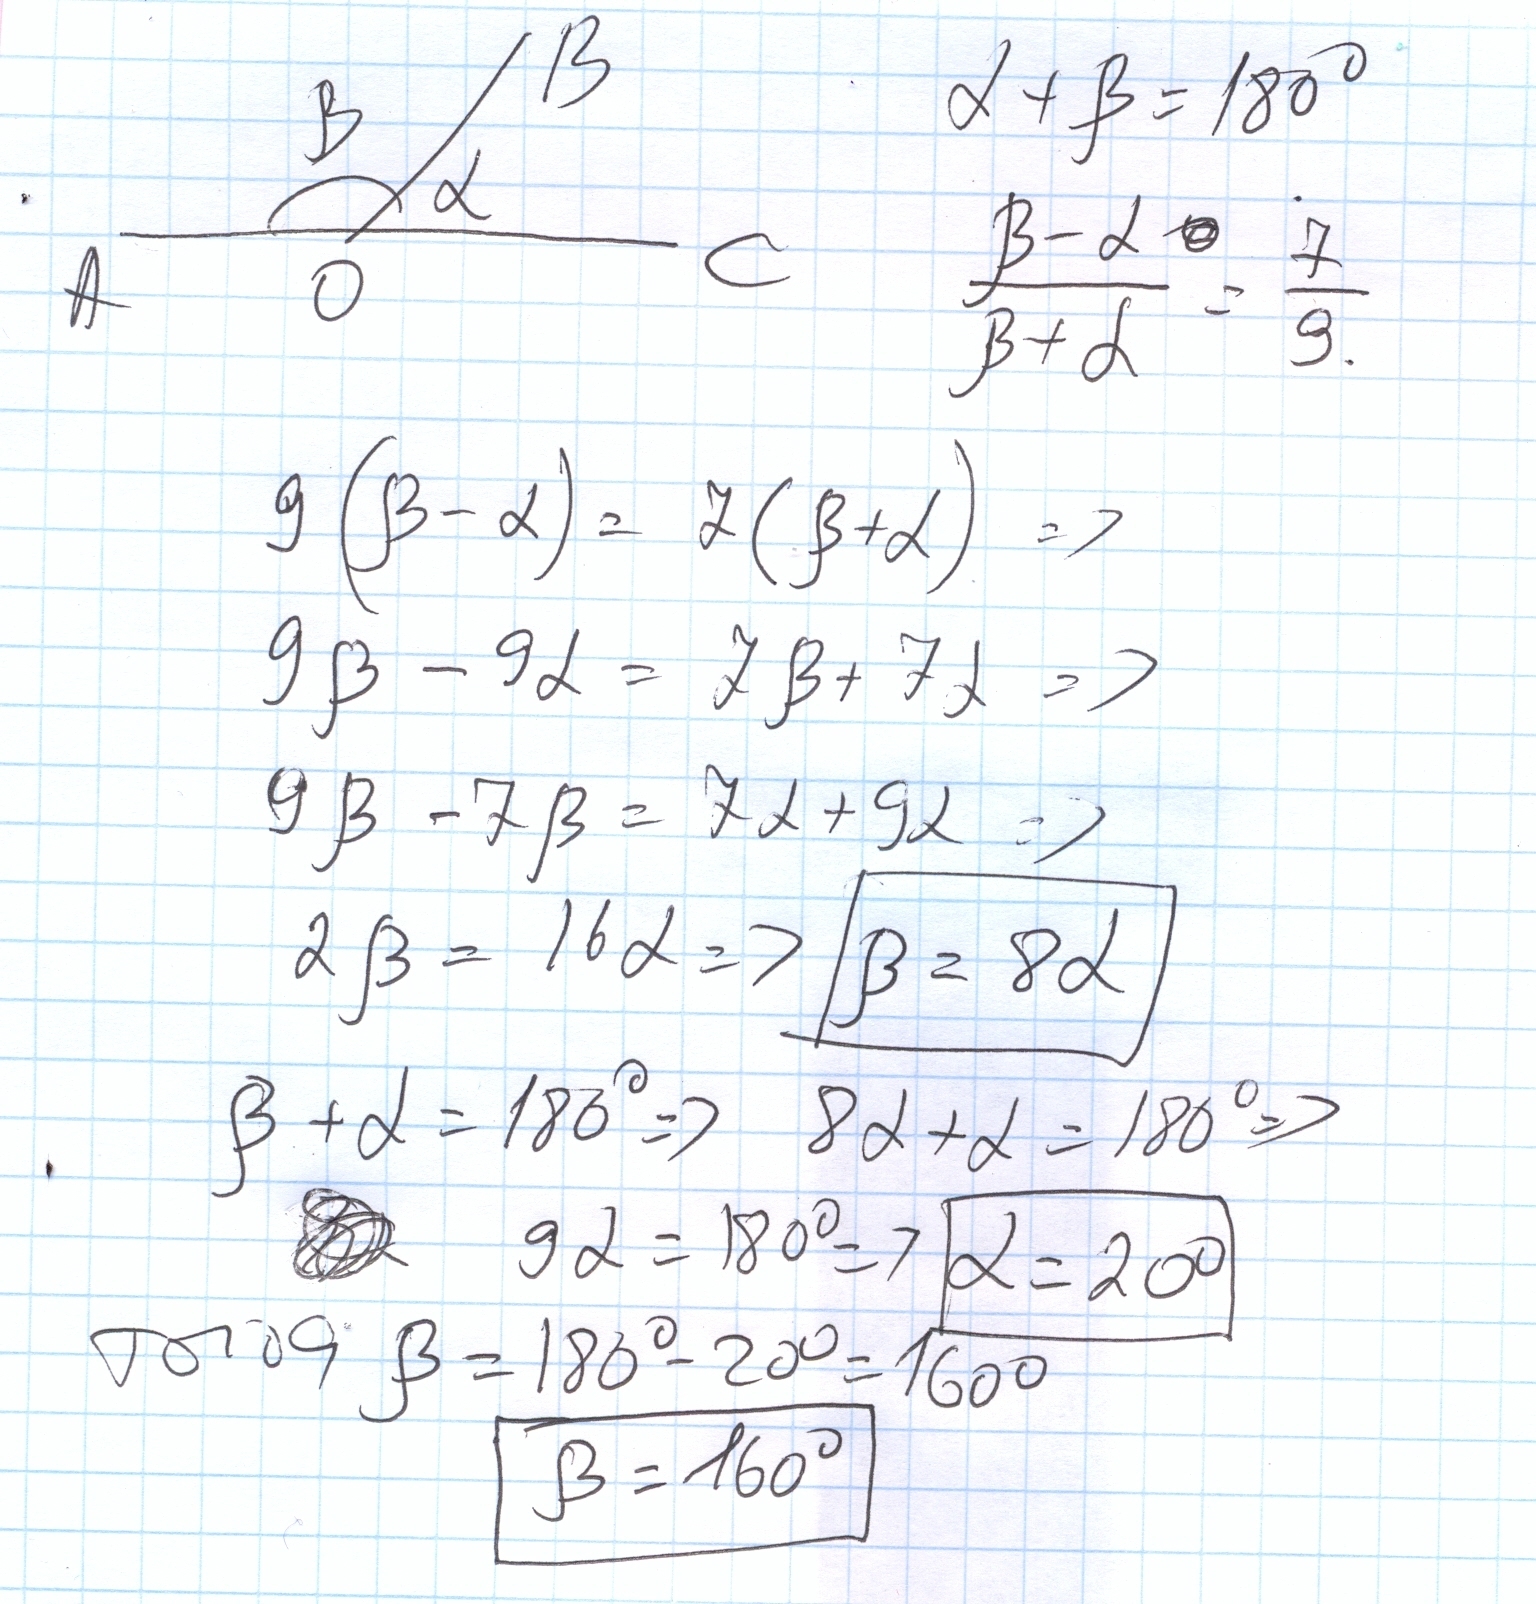 B
β
α
A
O
C
α + β = 180°
β - α / β + α = 7 / 9.
9 (β - α) = 7 (β + α) =>
9β - 9α = 7β + 7α =>
9β - 7β = 7α + 9α =>
2β = 16α => β = 8α
β + α = 180° => 8α + α = 180° =>
9α = 180° => α = 20°
β = 180° - 20° = 160°
β = 160°